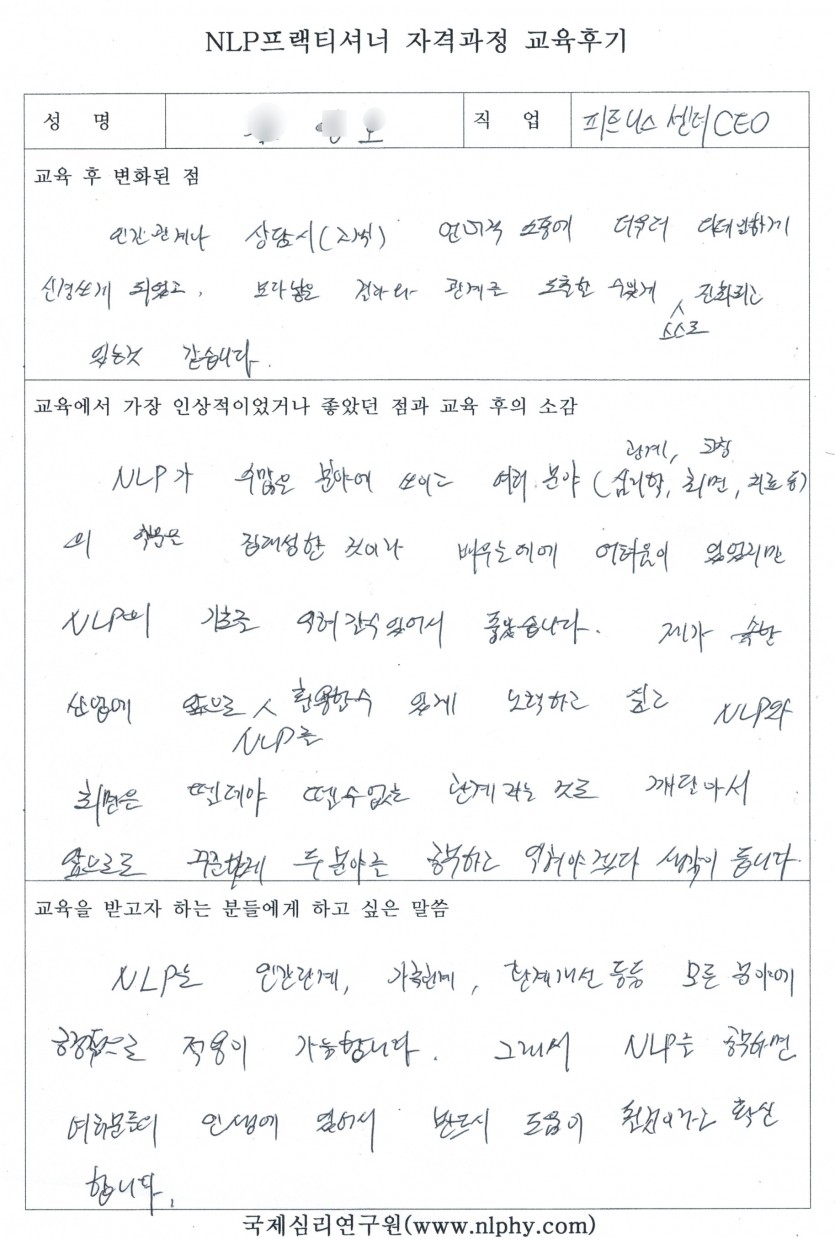 NLP프랙티셔너 자격과정 교육후기
성 명
직 업 피트니스 센터 CEO
교육 후 변화된 점
인간 관계나 상담시(코칭) 언어적 소통에 더욱더 디테일하게
신경쓰게 되었고, 보다 나은 결과와 관계를 도출할 수 있게 스스로 진화되고
있는것 같습니다.
교육에서 가장 인상적이었거나 좋았던 점과 교육 후의 소감
관계, 코칭
NLP가 수많은 분야에 쓰이고 여러 분야 (심리학, 최면, 치료 등)
의 학문을 집대성한 것이라 배우는데에 어려움이 있었지만
NLP의 기초를 익혀 갈수 있어서 좋았습니다. 제가 속한
산업에 앞으로 NLP를 활용할수 있게 노력하고 싶고 NLP와
최면은 뗄레야 뗄수없는 관계라는 것을 깨달아서
앞으로도 꾸준하게 두 분야를 공부하고 익혀야겠다 생각이 듭니다.
교육을 받고자 하는 분들에게 하고 싶은 말씀
NLP는 인간관계, 가족관계, 한계개선 등등 모든 분야에
긍정적으로 적용이 가능합니다. 그래서 NLP를 공부하면
여러분들의 인생에 있어서 반드시 도움이 확신
합니다.
국제심리연구원(www.nlphy.com)